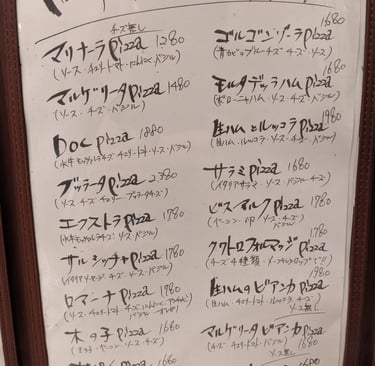 チーズ無し
マリナーラ pizza 1280
(ソース・チェリートマト・にんにく・バジル)
マルゲリータ pizza 1480
(ソース・チーズ・バジル)
DOC pizza 1880
(水牛モッツァレラチーズ・チェリートマト・ソース・バジル)
ブッラータ pizza 2380
(ソース・チーズ・チェリー・ブッラータチーズ)
エクストラ pizza 1780
(水牛モッツァレラチーズ・ソース・バジル)
サルシッチャ pizza 1780
(イタリアソーセージ・チーズ・ソース・バジル)
ロマーナ pizza 1780
(ソース・チーズ・にんにく・アンチョビ
バジル・オレガノ)
木の子 pizza 1680
ソース・バジル)
1680
1680
ゴルゴンゾーラ pizza
(青カビブルーチーズ・チーズ・ソース)
1680
モルタデッラハム pizza
(ボローニャハム・ソース・チーズ・バジル)
1980
生ハムとルッコラ pizza
(生ハム・ルッコラ・ソース・チーズ・バジル)
サラミ pizza 1680
(イタリアサラミ・ソース・バジル・チーズ)
ビスマルク pizza 1780
(ベーコン・卵・ソース・チーズ
バジル)
1780
クワトロフォルマッジ pizza
(チーズ4種類・メープルシロップで!!)
1980
生ハムのビアンカ pizza
(生ハム・チェリートマト・ルッコラ・チーズ)
ソース無し
1680
マルゲリータビアンカ pizza
(チーズ・チェリートマト・バジル)
ソース無し
1680